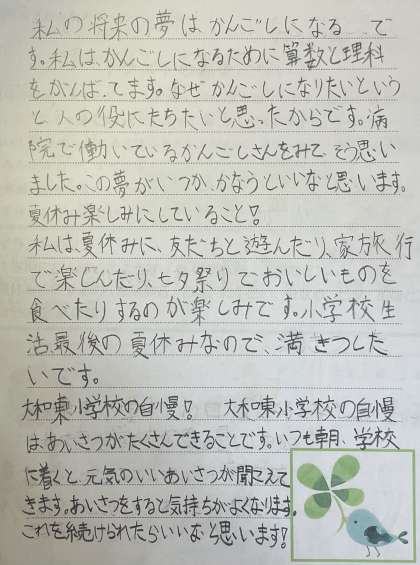 私の将来の夢は、かんごしになるで
す。私は、かんごしになるために算数と理科
をがんばってます。なぜかんごしになりたいという
と人の役にたちたいと思ったからです。病
院で働いているかんごしさんをみて、そう思い
ました。この夢がいつか、かなうといいなと思います。
夏休み楽しみにしていること!
私は、夏休みに、友だちと遊んだり、家族旅行
で楽しんだり、七夕祭りでおいしいものを
食べたりするのが楽しみです。小学校生
活最後の夏休みなので、満きつした
いです。
大和東小学校の自慢! 大和東小学校の自慢
は、あいさつがたくさんできることです。いつも朝、学校
に着くと、元気のいいあいさつが聞こえて
きます。あいさつをすると気持ちがよくなります。
これを続けられたらいいなと思います!